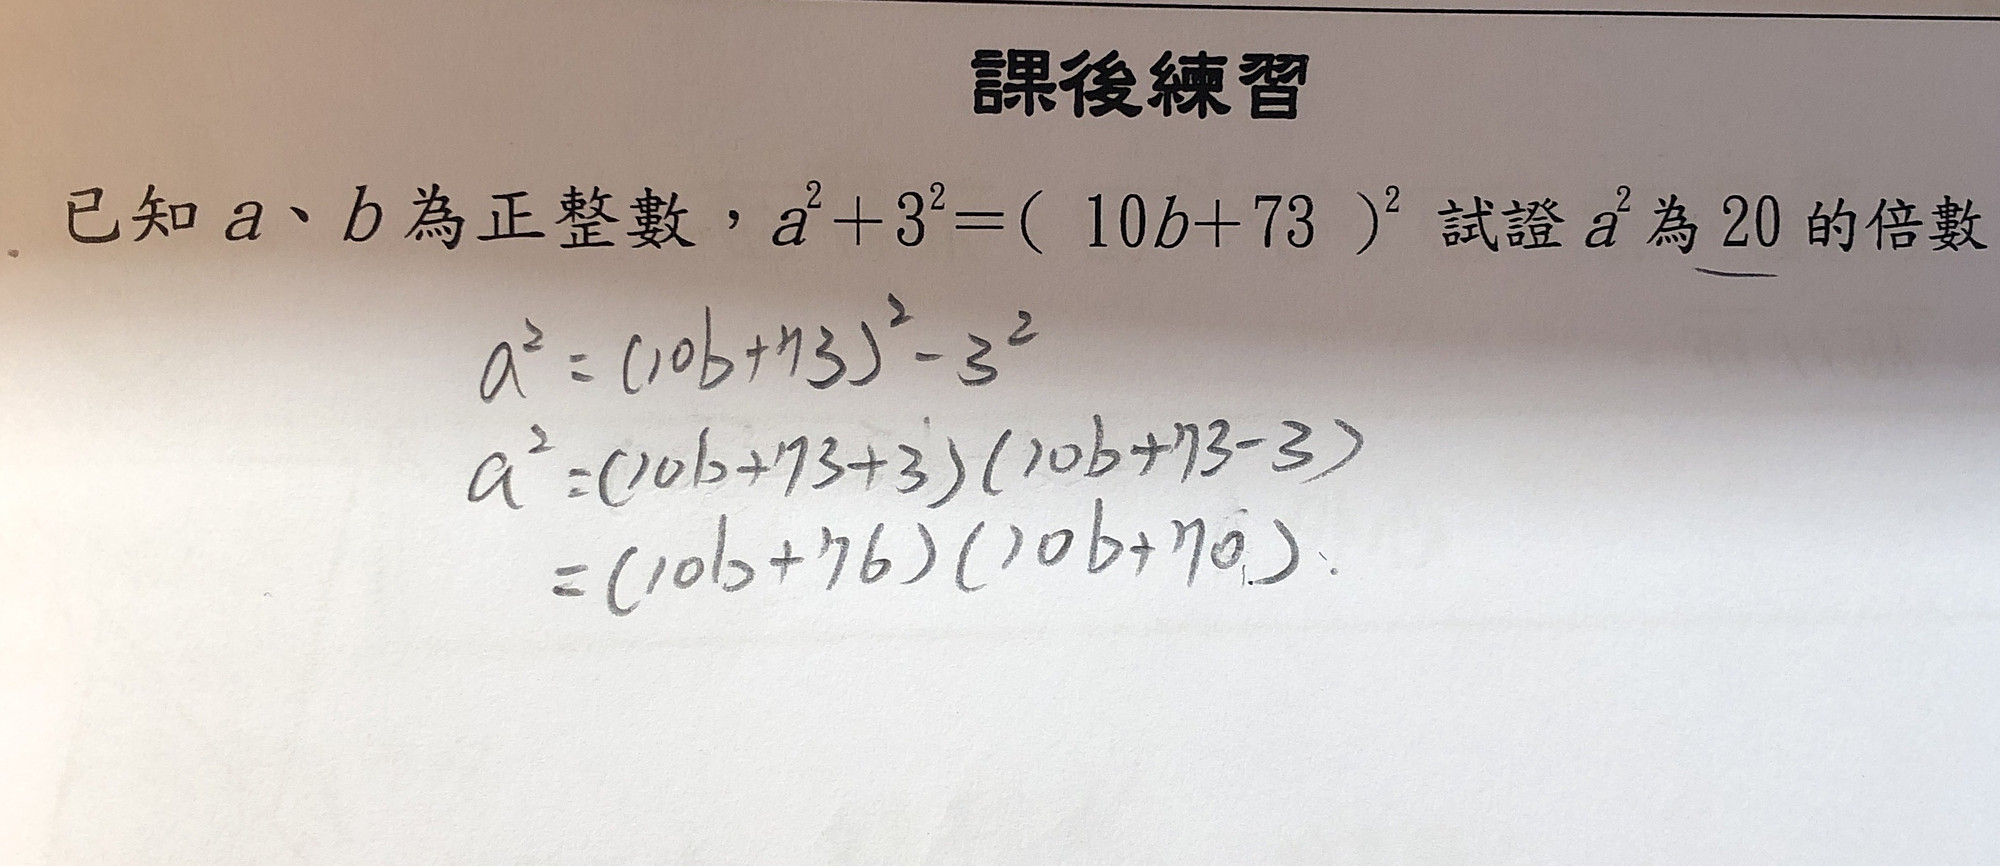 課後練習
已知 a、b 為正整數，a²＋3²＝( 10b＋73 )² 試證 a² 為 20 的倍數
a² = (10b+73)² - 3²
a² = (10b+73+3)(10b+73-3)
= (10b+76)(10b+70).